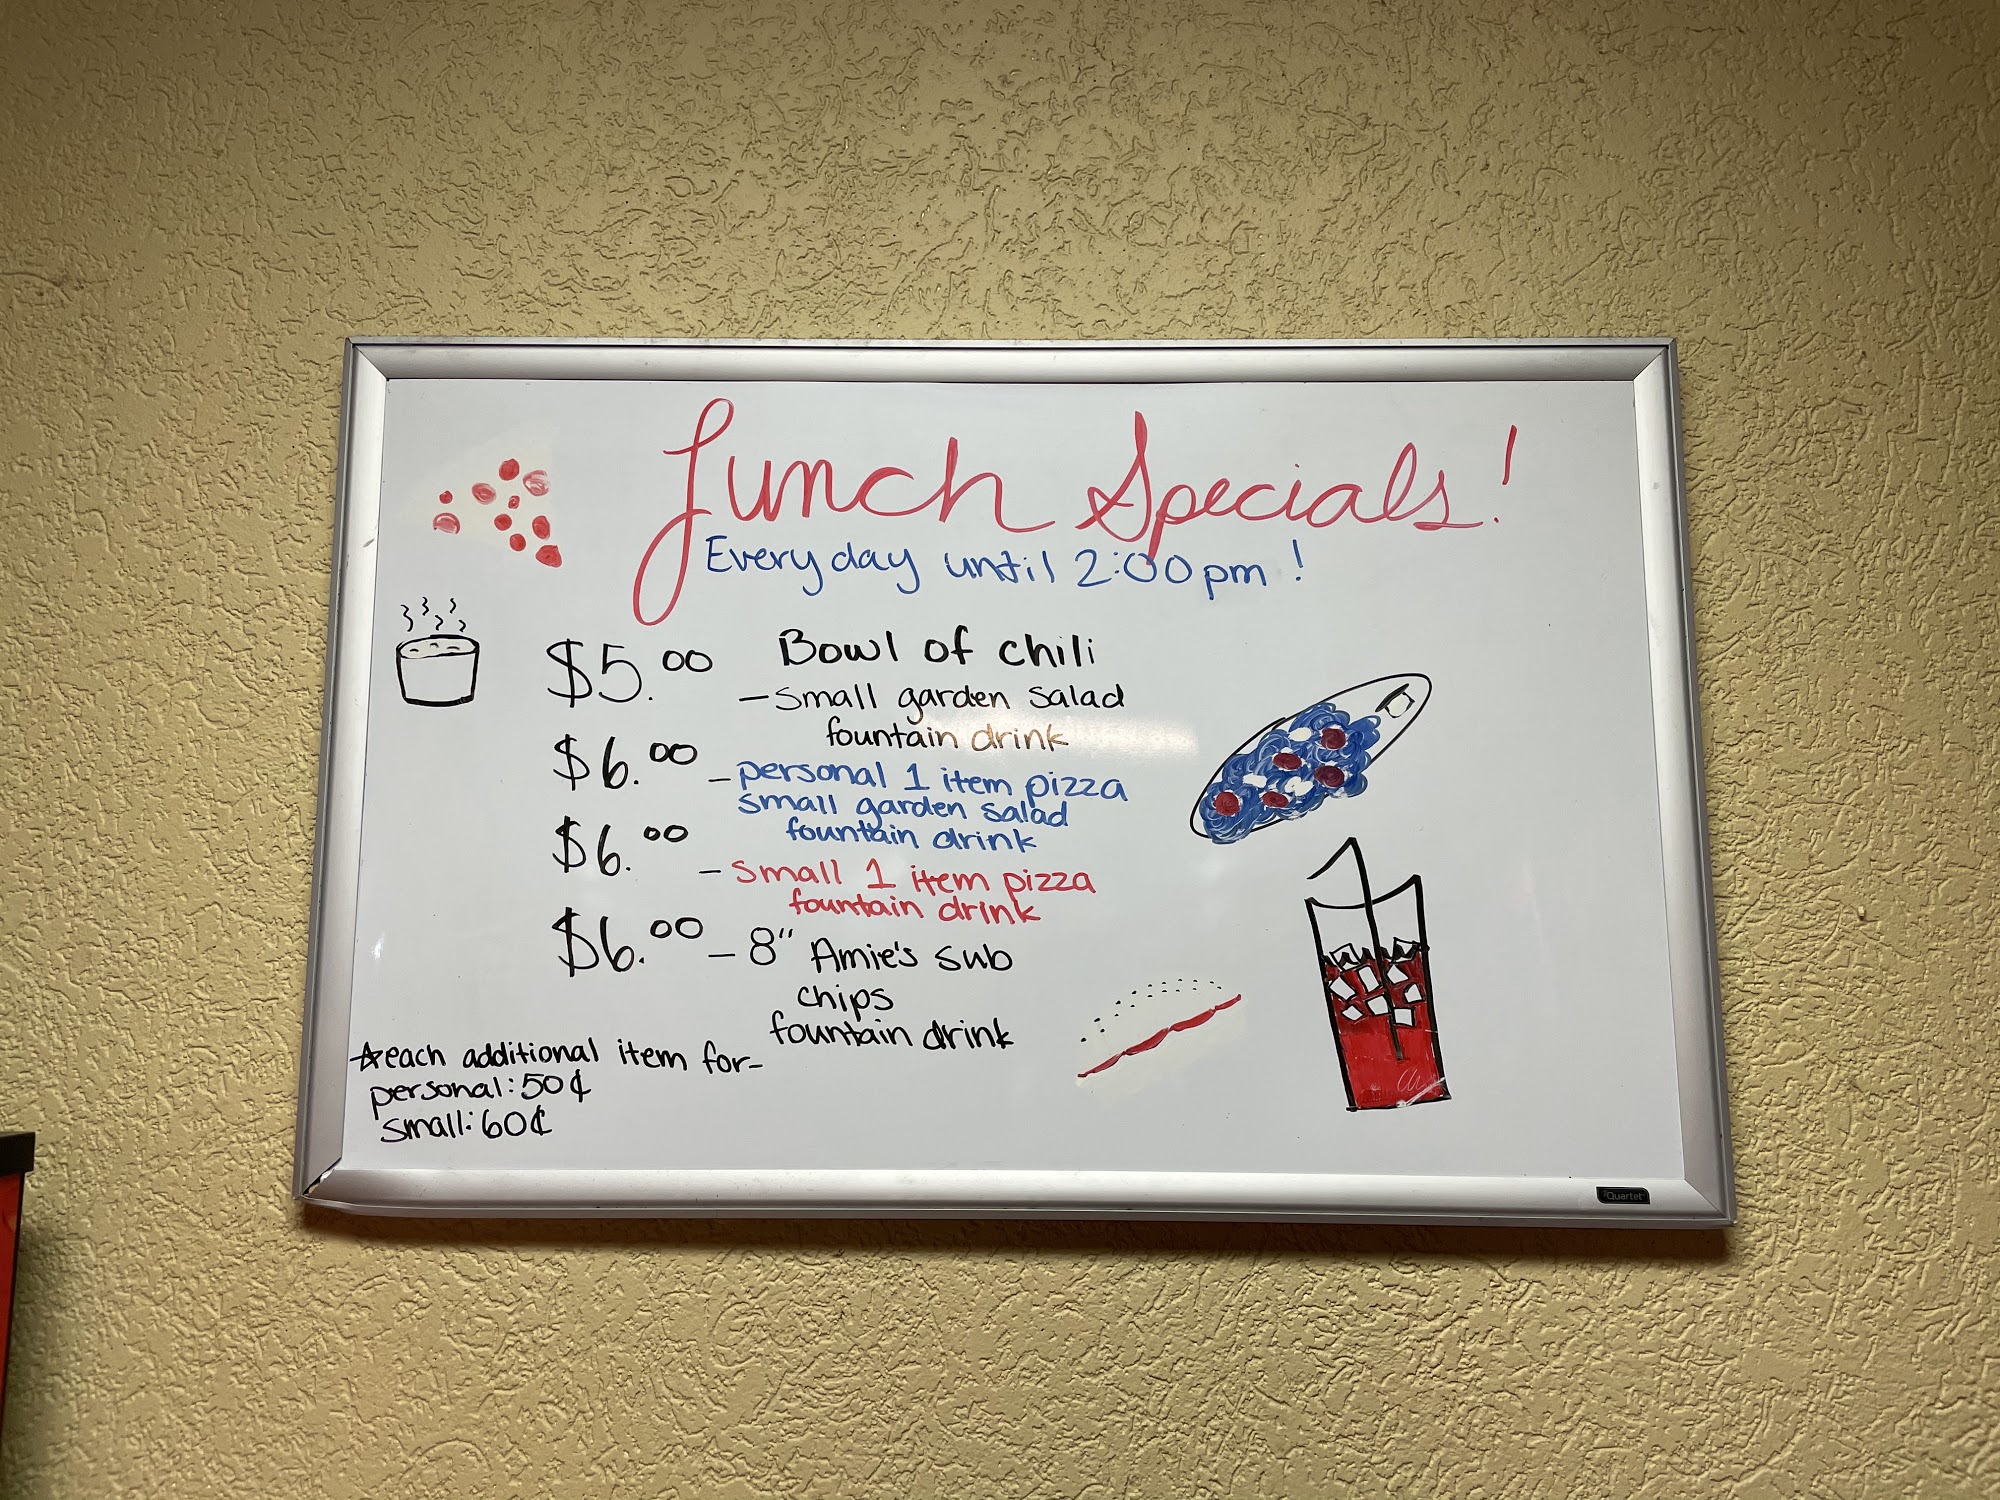 Lunch Specials!
Everyday until 2:00pm!
$5.00 Bowl of chili
- small garden salad
fountain drink
$6.00 - personal 1 item pizza
small garden salad
fountain drink
$6.00 - small 1 item pizza
fountain drink
$6.00 - 8" Amie's sub
chips
fountain drink
☆each additional item for-
personal: 50¢
small: 60¢
Quartet